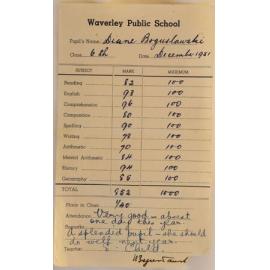 Waverley Public School
Pupil's Name Diane Boguslawski
Class 6th Date December 1951
SUBJECT MARK MAXIMUM
Reading 82 100
English 93 100
Comprehension 96 100
Composition 80 100
Spelling 90 100
Writing 78 100
Arithmetic 70 100
Mental Arithmetic 84 100
History 94 100
Geography 85 100
TOTAL 852 1000
Place in Class 1/40
Attendance Very good - absent
one day this year
Remarks
A splendid pupil - she should
do well next year.
Teacher Child.